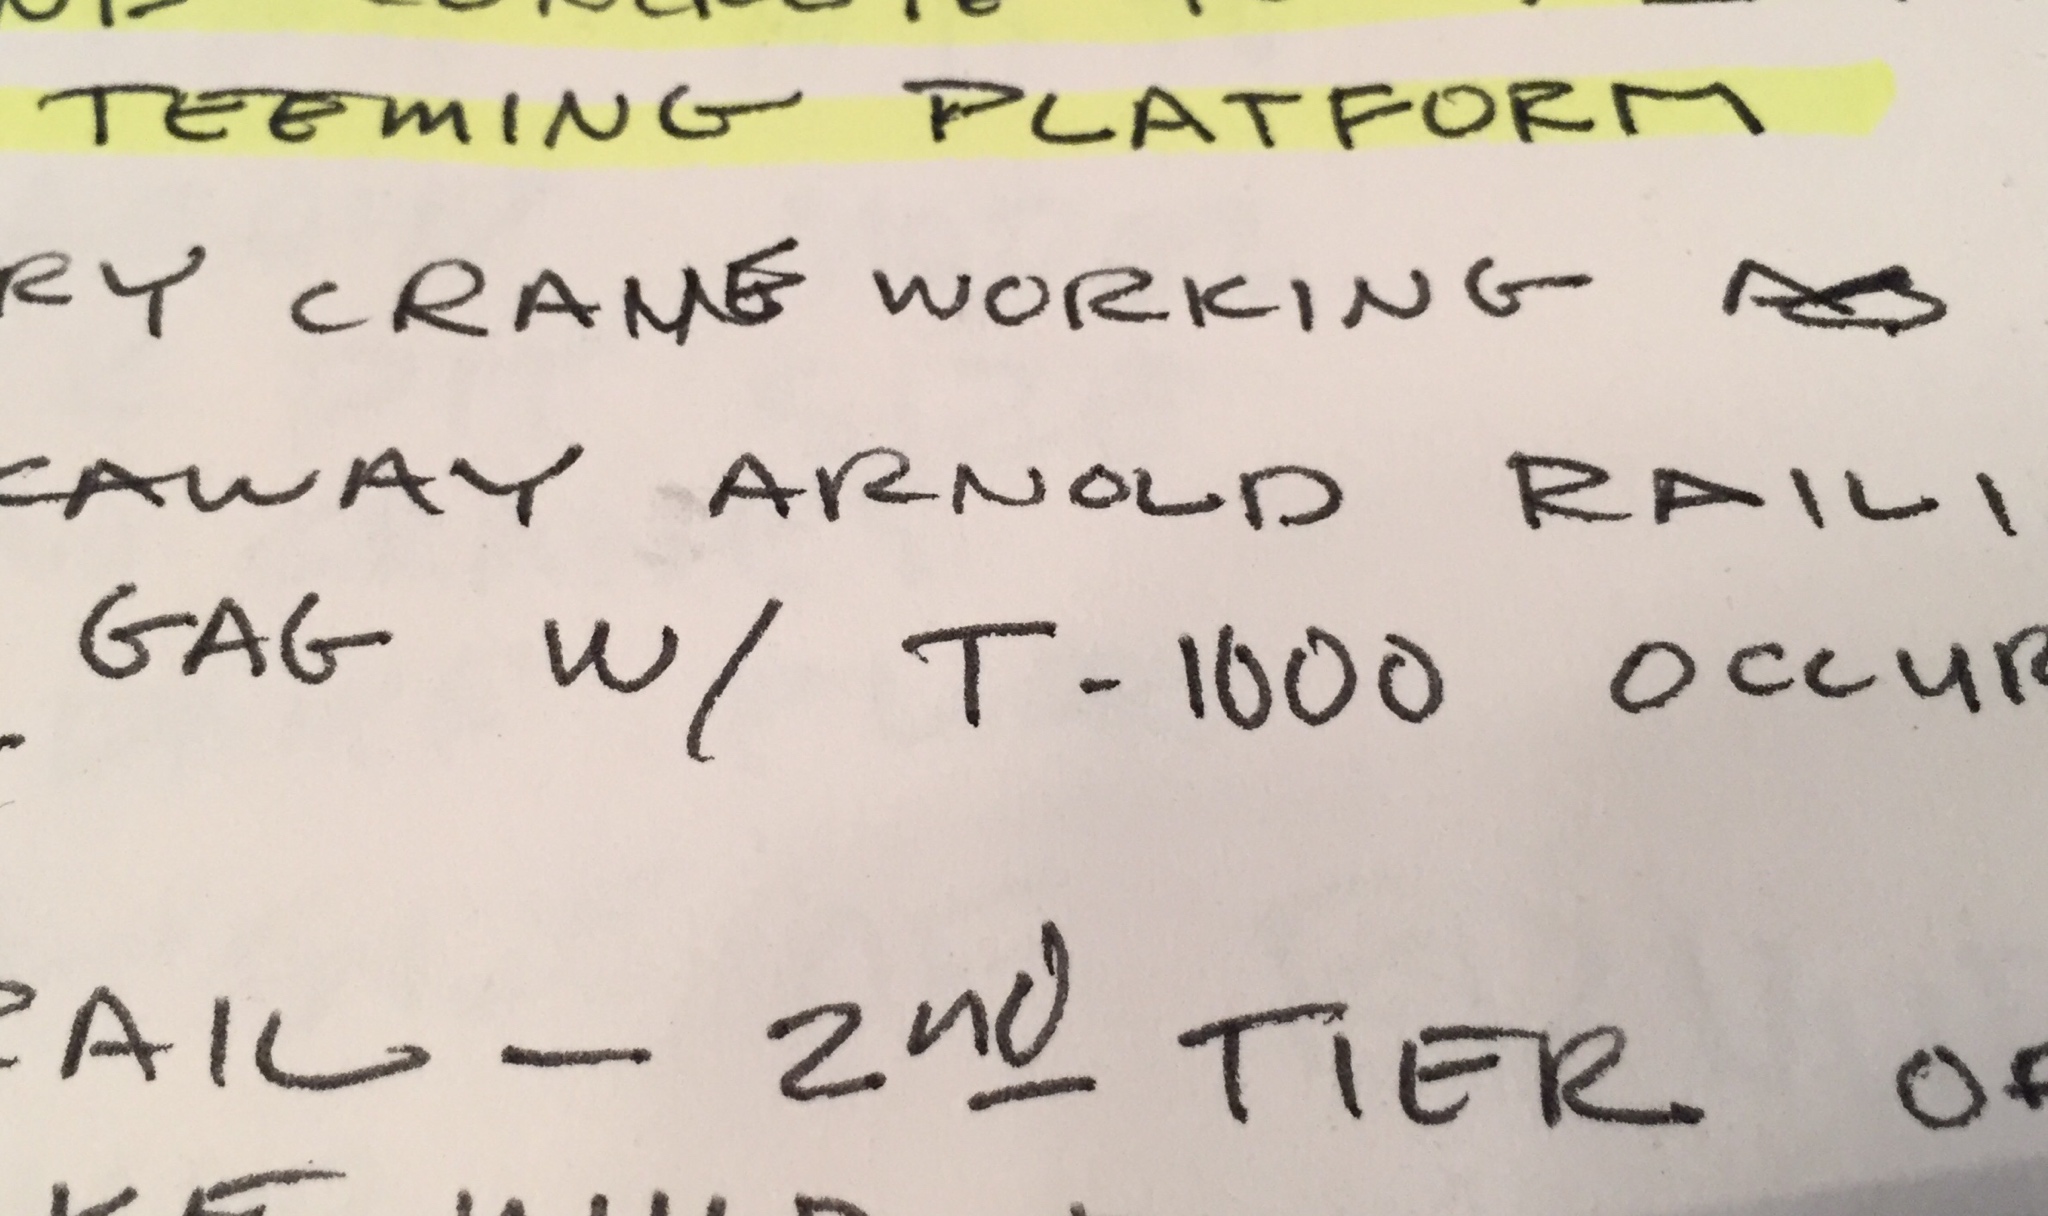 CONCRETE
TEEMING PLATFORM
RY CRANE WORKING
KAWAY ARNOLD RAILI
GAG W/ T-1000 OCCUR
RAIL — 2nd TIER OF